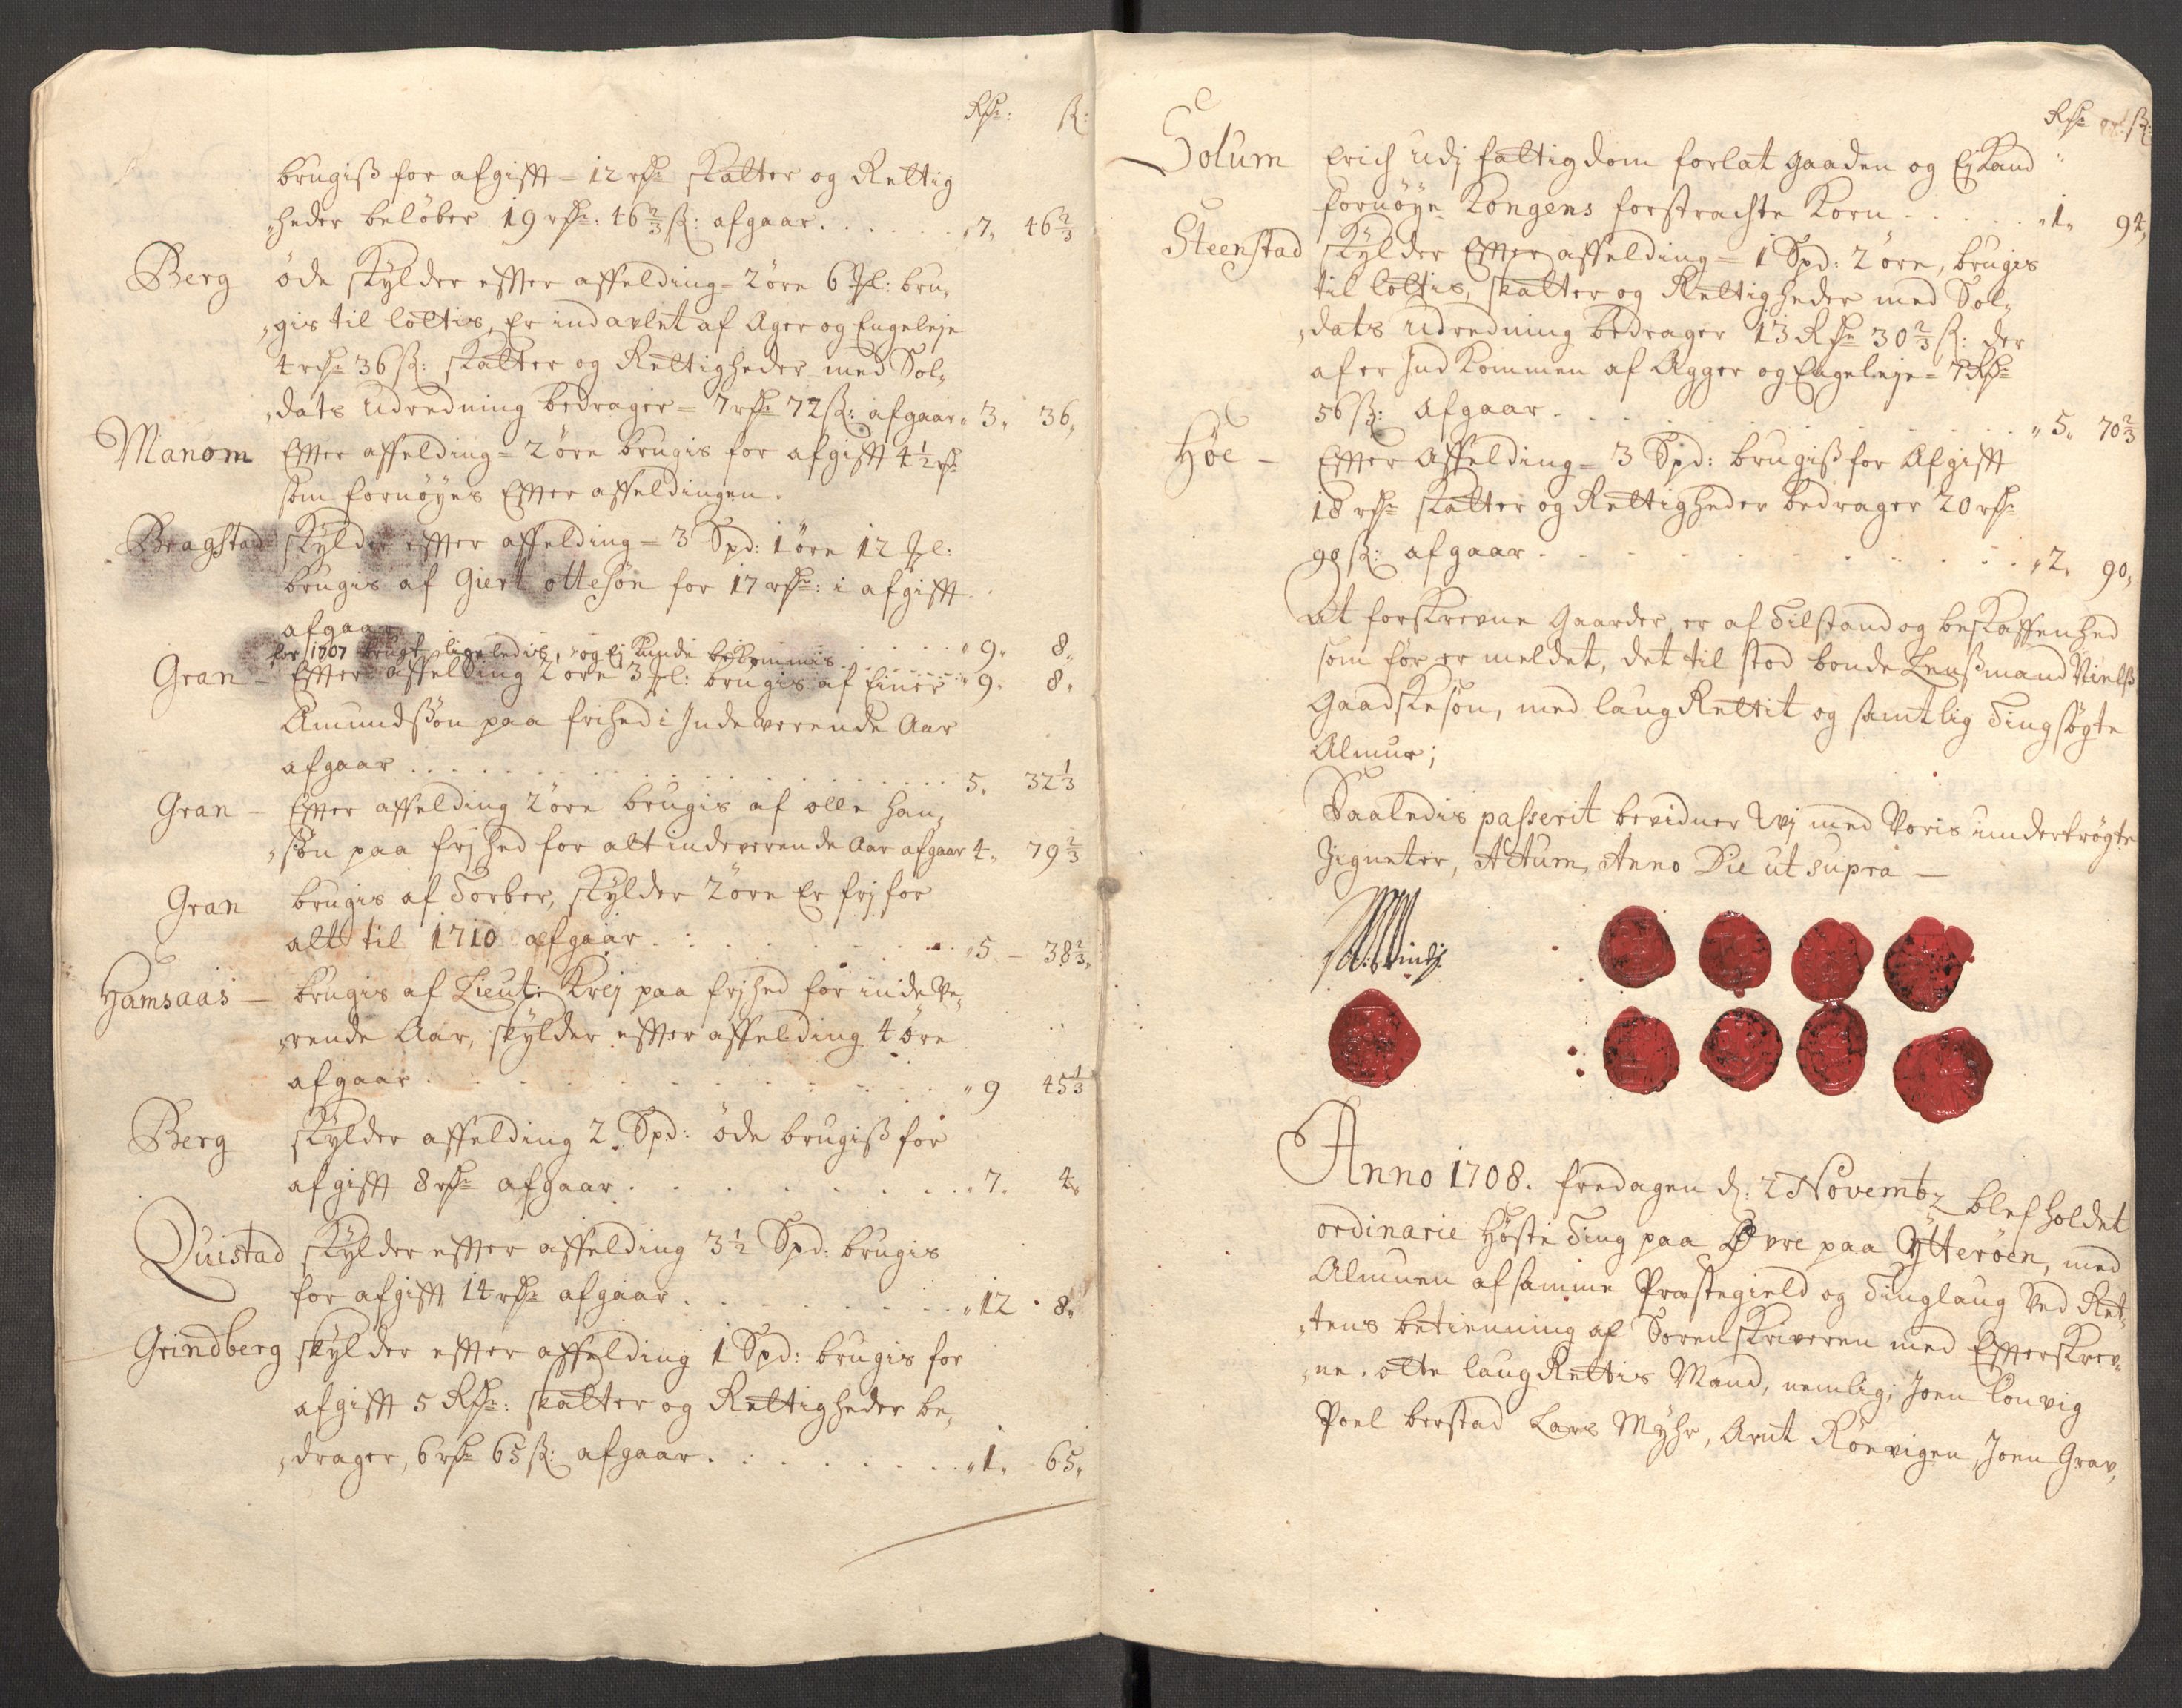 Rdr: ß:
brugiß for afgifft – 12 rdr skatter og Rettig
heder beløber 19 rdr: 46 2/3 ß: afgaar . . . . . . 7, 46 2/3
Berg øde skylder effter affelding = 2 øre 6 Ml: bru,
,gis til lottis, Er indavlet af Ager og Engeleje
4 rdr 36 ß: skatter og Rettigheder med Sol,
,dats Udredning bedrager = 7 rdr 72 ß: afgaar, 3, 36,
Manom Effter affelding = 2 øre brugis for afgifft 4 1/2 rdr
som fornøyes Effter affeldingen.
Bragstad skylder effter affelding = 3 Spd: 1 øre 12 Ml:
brugis af Giert otteßøn for 17 rdr: i afgifft
afgaar . . . . . . 9, 8,
for 1707 brugt ligeledis, og Ej kunde bekommis . . . . . 9, 8,
Gran – Effter affelding 2 øre 3 Ml: brugis af Einer
Amundßøn paa frihed i Indeværende Aar
afgaar . . . . . . 5, 32 1/3
Gran – Effter affelding 2 øre brugis af olle Han,
,søn paa frjhed for alt indeverende Aar afgaar 4, 79 2/3
Gran brugis af Torber, skylder 2 øre Er frj for
alt til 1710 afgaar . . . . . . 5 – 38 2/3,
Hamsaas – brugis af Lieut: Krej paa frjhed for indeve,
,rende Aar, skylder effter affelding 4 øre
afgaar . . . . . . 9 45 1/3
Berg skylder affelding 2 Spd: øde brugiß for
afgifft 8 rdr afgaar . . . . . . 7. 4,
Quistad skylder effter affelding 3 1/2 Spd: brugis
for afgifft 14 rdr afgaar . . . . . . 12 . 8,
Grindberg skylder effter affelding 1 Spd: brugis for
afgifft 5 Rdr: skatter og Rettigheder be,
,drager, 6 rdr 65 ß: afgaar . . . . . . 1, 65,
Rdr ß:
Solum Erich udj fattigdom forlat gaarden og Ej kand
fornøye Kongens forstrachte Korn . . . . . . 1, 94,
Steenstad skylder Effter affelding = 1 Spd: 2 øre, brugis
til lottis, skatter og Rettigheder med Sol,
,dats Udredning bedrager 13 Rdr 30 2/3 ß: der
af er Ind kommen af Agger og Engeleje = 7 Rdr
56 ß: afgaar . . . . . . 5, 70 2/3
Høe – Effter Affelding = 3 Spd: brugiß for Afgifft
18 rdr skatter og Rettigheder bedrager 20 rdr
90 ß: afgaar . . . . . . 2, 90,
At forskrevne Gaarder er af Tilstand og beskaffenhed
som før er meldet, det til stod bonde Lenßmand Nielß
Gaadskeßøn, med laug Rettit og samtlig Tingsøgte
Almue;
Saaledis passerit bevidner Vj med Voris undertrøgte
Zigneter, Actum, Anno Die ut supra –
Anno 1708. fredagen d: 2 Novembr blef holdet
ordinarie Høste Ting paa Øvre paa Ytterøen, med
Almuen af samme Præstegield og Tinglaug ved Ret,
,tens betienning af Sorenskriveren med Effterskrev,
,ne. otte laug Rettis Mænd, nemlig; Joen Lonvig
Poel berstad Lars Myhr, Arnt Rönvigen, Joen Grav,